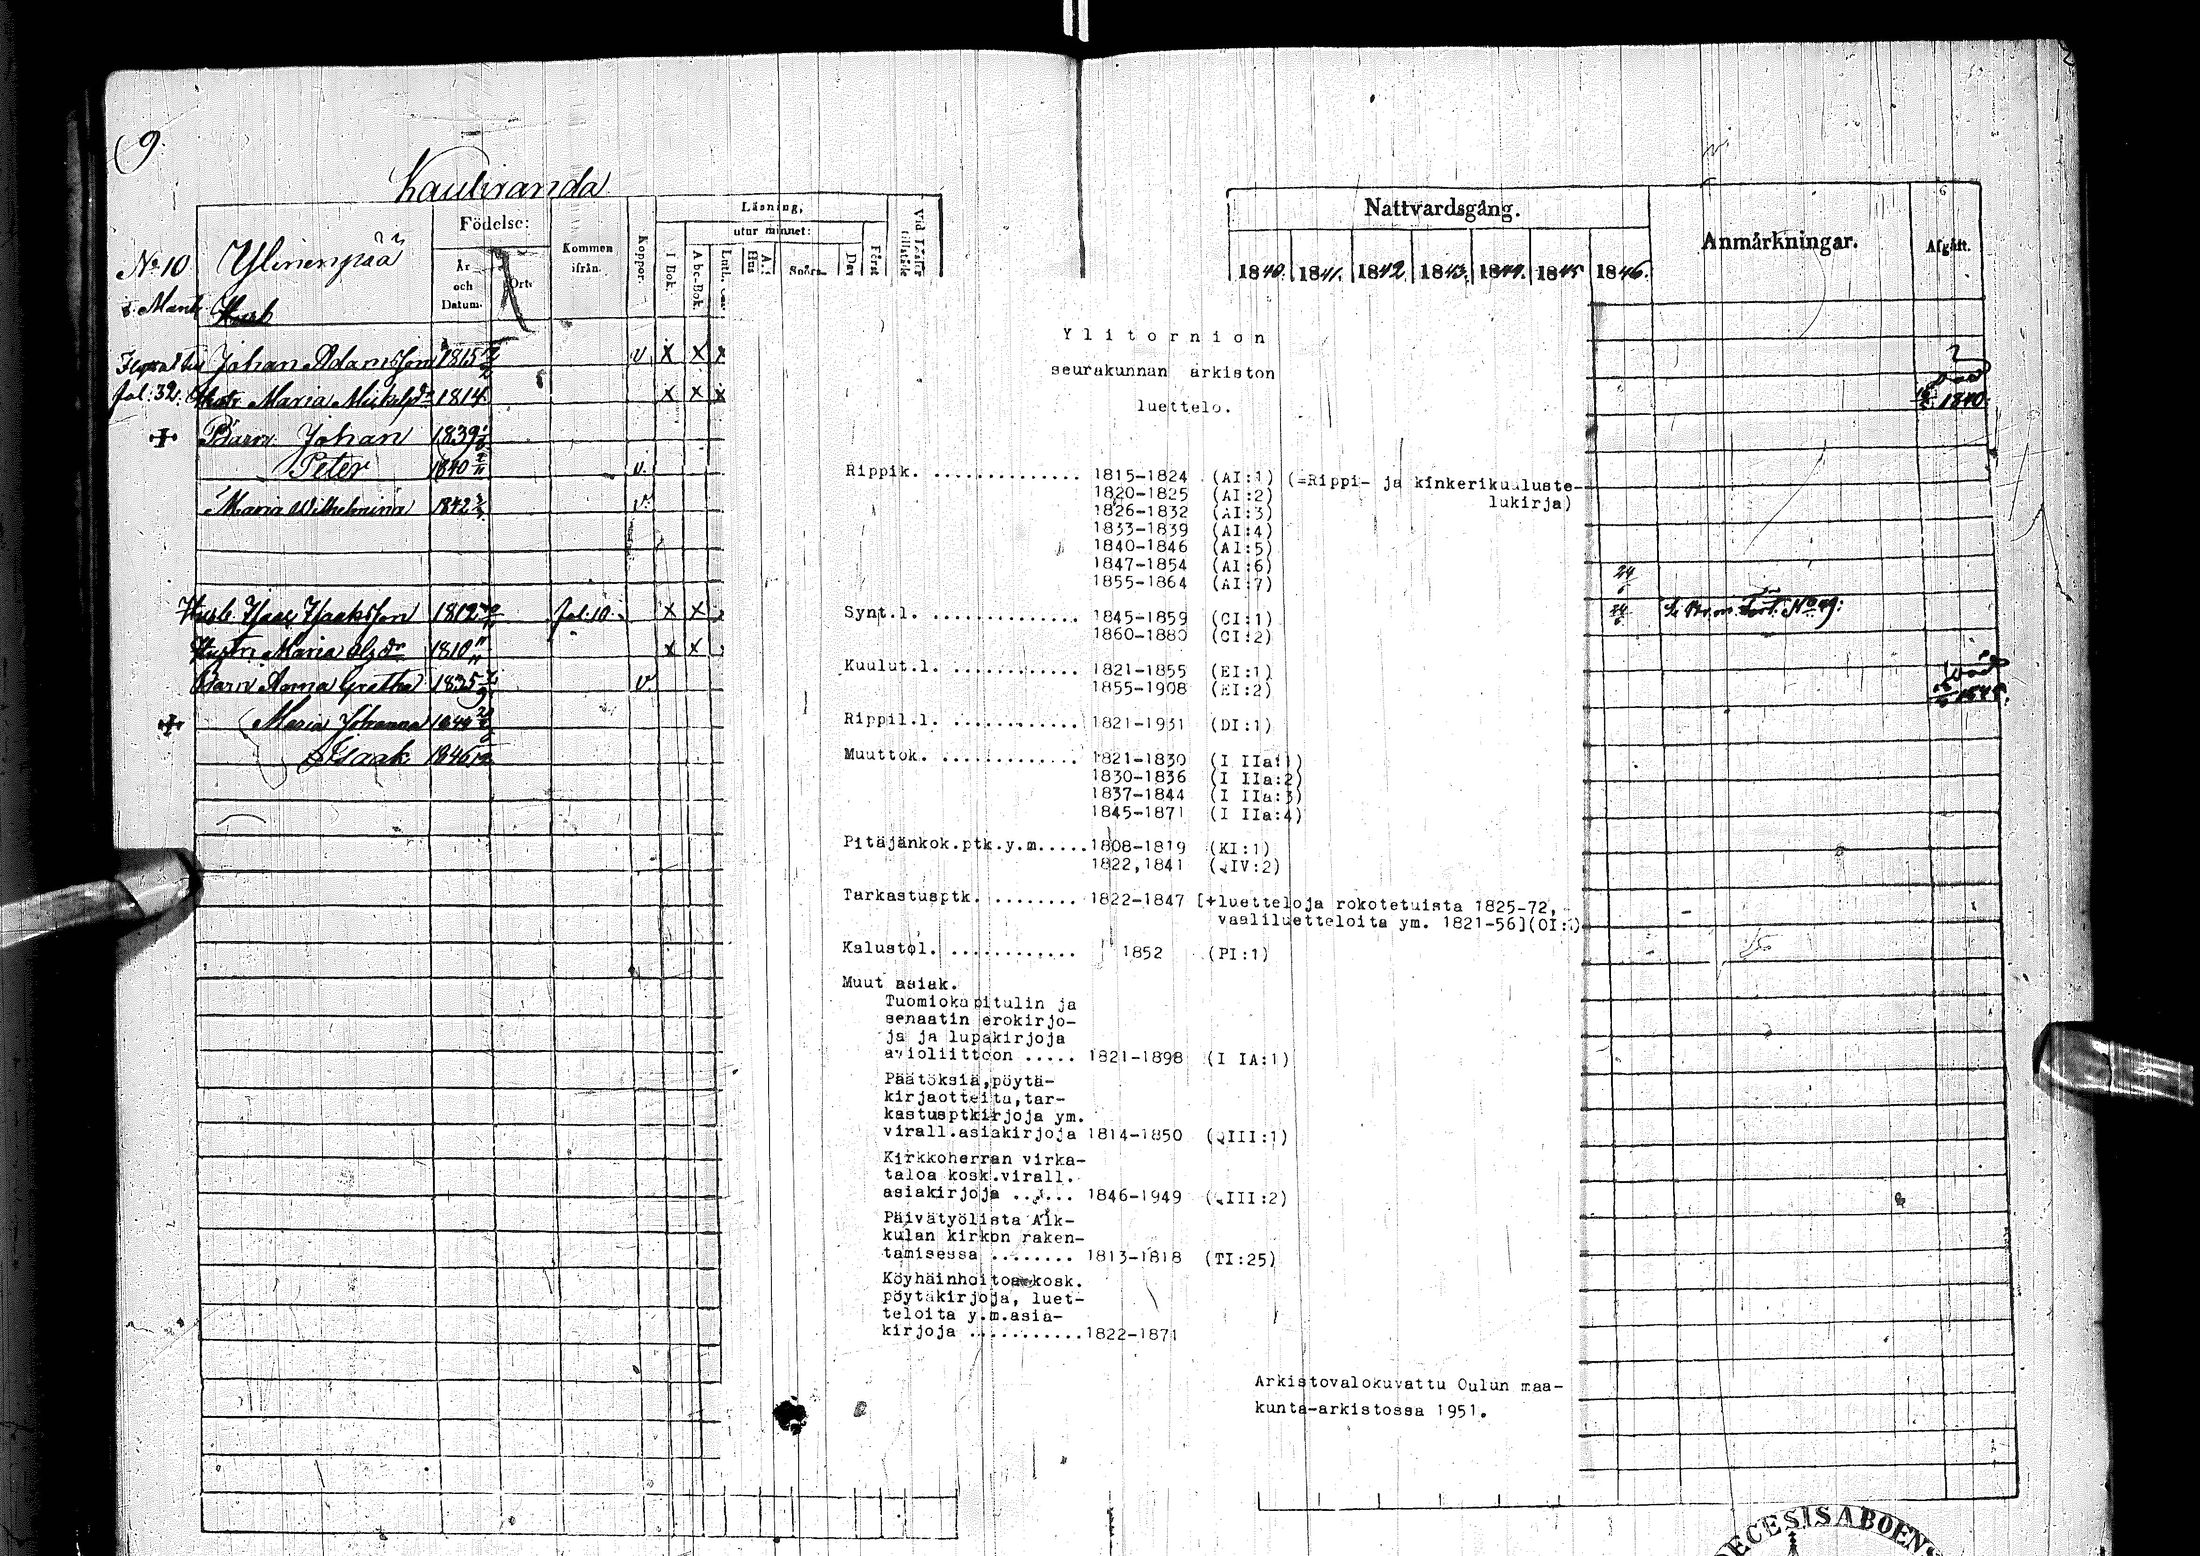 9.
Kauliranda
No 10 Ylinenpää
Mant.
Husb
Födelse:
År och Datum.
Ort.
Kommen ifrån.
Koppor.
Läsning,
utur minnet:
I Bok.
Abc-Bok.
Luth.
Hus
Spörs
Dav
Först
Johan Adamsson 1815 v x x x
fol: 32. Hustr Maria Mickelsdr 1814 x x x
Barn Johan 1839
Peter 1840 v.
Maria Wilhelmina 1842 v.
Husb. Isaac Isaksson 1812 fol. 10. x x
Hustr. Maria Olsdr 1810 x x
Barn Anna Gretha 1835 v
Maria Johanna 1844
Isaak 1846
Nattvardsgång.
Anmärkningar.
Afgått.
1840. 1841. 1842. 1843. 1844. 1845 1846.
död
1840.
24
24/6
No 49:
död
Ylitornion
seurakunnan arkiston
luettelo.
Rippik. .............. 1815-1824 (AI:1) (=Rippi- ja kinkerikuuluste-
1820-1825 (AI:2) lukirja)
1826-1832 (AI:3)
1833-1839 (AI:4)
1840-1846 (AI:5)
1847-1854 (AI:6)
1855-1864 (AI:7)
Synt.l. .............. 1845-1859 (CI:1)
1860-1880 (CI:2)
Kuulut.l. ............ 1821-1855 (EI:1)
1855-1908 (EI:2)
Rippil.l. ............ 1821-1931 (DI:1)
Muuttok. ............. 1821-1830 (I IIa:1)
1830-1836 (I IIa:2)
1837-1844 (I IIa:3)
1845-1871 (I IIa:4)
Pitäjänkok.ptk.y.m.....1808-1819 (KI:1)
1822,1841 (QIV:2)
Tarkastusptk. ........ 1822-1847 [+luetteloja rokotetuista 1825-72,
vaaliluetteloita ym. 1821-56](OI:
Kalustol. ............ 1852 (PI:1)
Muut asiak.
Tuomiokapitulin ja
senaatin erokirjo-
ja ja lupakirjoja
avioliittoon ..... 1821-1898 (I IA:1)
Päätöksiä,pöytä-
kirjaotteita,tar-
kastusptkirjoja ym.
virall.asiakirjoja 1814-1850 (QIII:1)
Kirkkoherran virka-
taloa kosk.virall.
asiakirjoja ...... 1846-1949 (QIII:2)
Päivätyölista Alk-
kulan kirkon raken-
tamisessa ........ 1813-1818 (TI:25)
Köyhäinhoitoa kosk.
pöytäkirjoja, luet-
teloita y.m.asia-
kirjoja ...........1822-1871
Arkistovalokuvattu Oulun maa-
kunta-arkistossa 1951.
DECESIS ABOEN